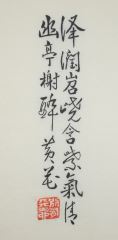 泽润岩峣含紫氣情
幽亭榭醉黄花